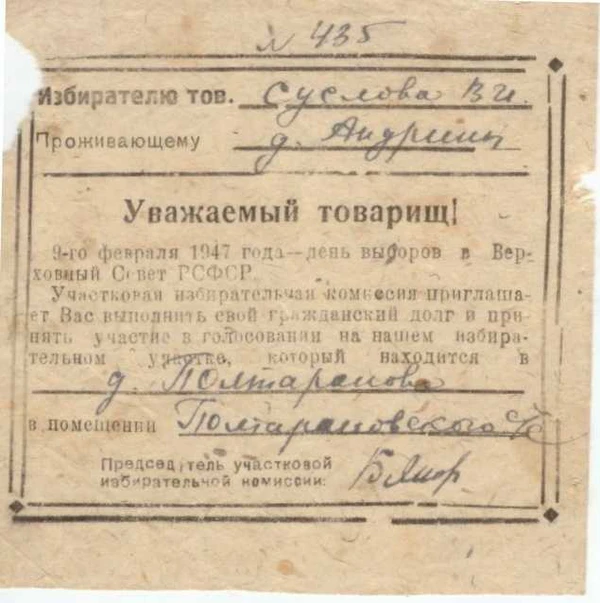 № 435
Избирателю тов. Суслова В.И.
Проживающему д. Андрины
Уважаемый товарищ!
9-го февраля 1947 года—день выборов в Вер-
ховный Совет РСФСР.
Участковая избирательная комиссия приглаша-
ет Вас выполнить свой гражданский долг и при
нять участие в голосовании на нашем избира-
тельном участке, который находится в
д. Полтаранова
в помещении Полтарановского с/с
Председатель участковой
избирательной комиссии: